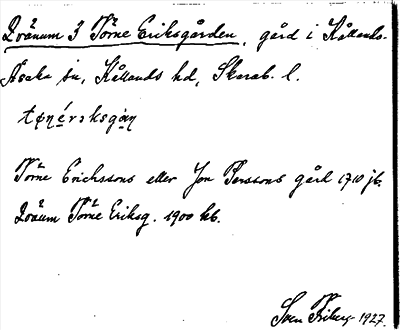 Qvänum 3 Törne Eriksgården, gård i Kållands-
Åsaka sn, Kållands hd, Skarab. l.
Törne Erichssons eller Jon Perssons gård 1710 jb.
Qvänum Törne Eriksg. 1900 kb.
Sven Friberg 1927.